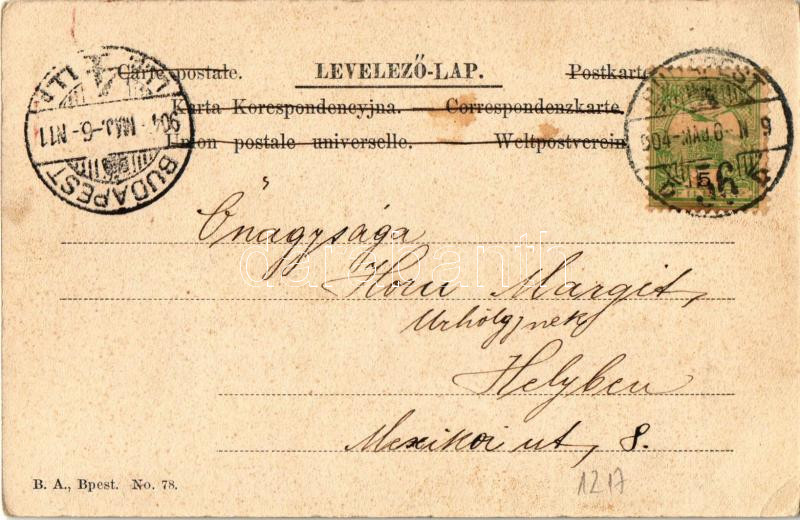 Carte postale. LEVELEZŐ-LAP. Postkarte
Karta Korespondencyjna. Correspondenzkarte.
Union postale universelle. Weltpostverein
BUDAPEST
904 MÁJ.-6.-N11
BUDAPEST
904-MÁJ.6-N 9
5
56
Őnagysága
Horn Margit,
Urhölgynek
Helyben
Mexikoi ut, 8.
darabanth
B. A., Bpest. No. 78.
1217